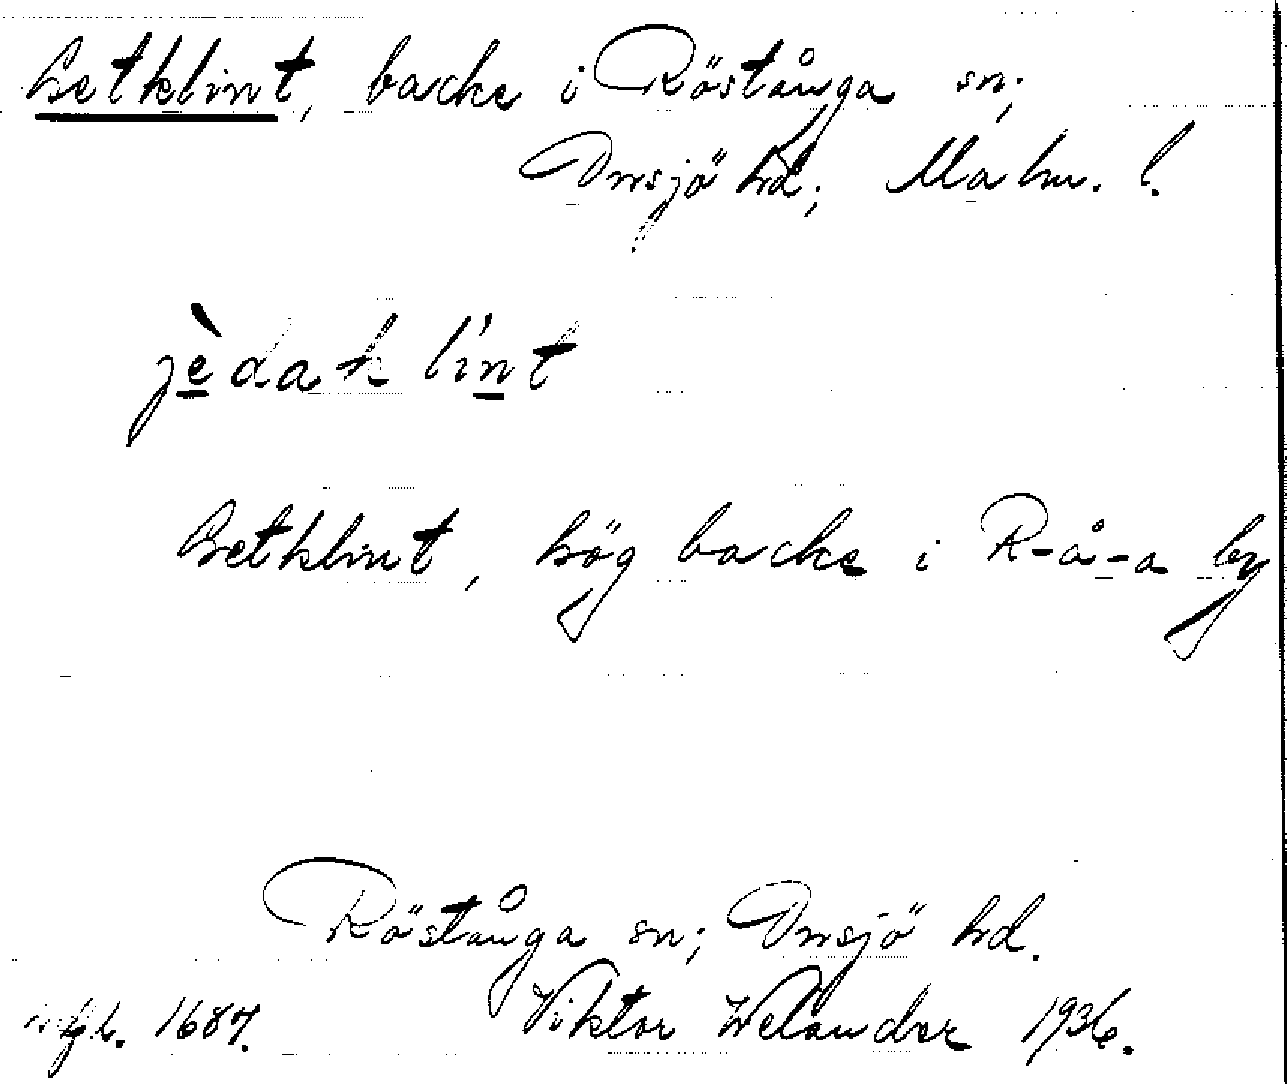 Getklint, backe i Röstånga sn;
Onsjö hd; Malm. l.
jèdaklint
Getklint, hög backe i R-å-a by
Röstånga sn; Onsjö hd.
1687. Viktor Welander 1936.